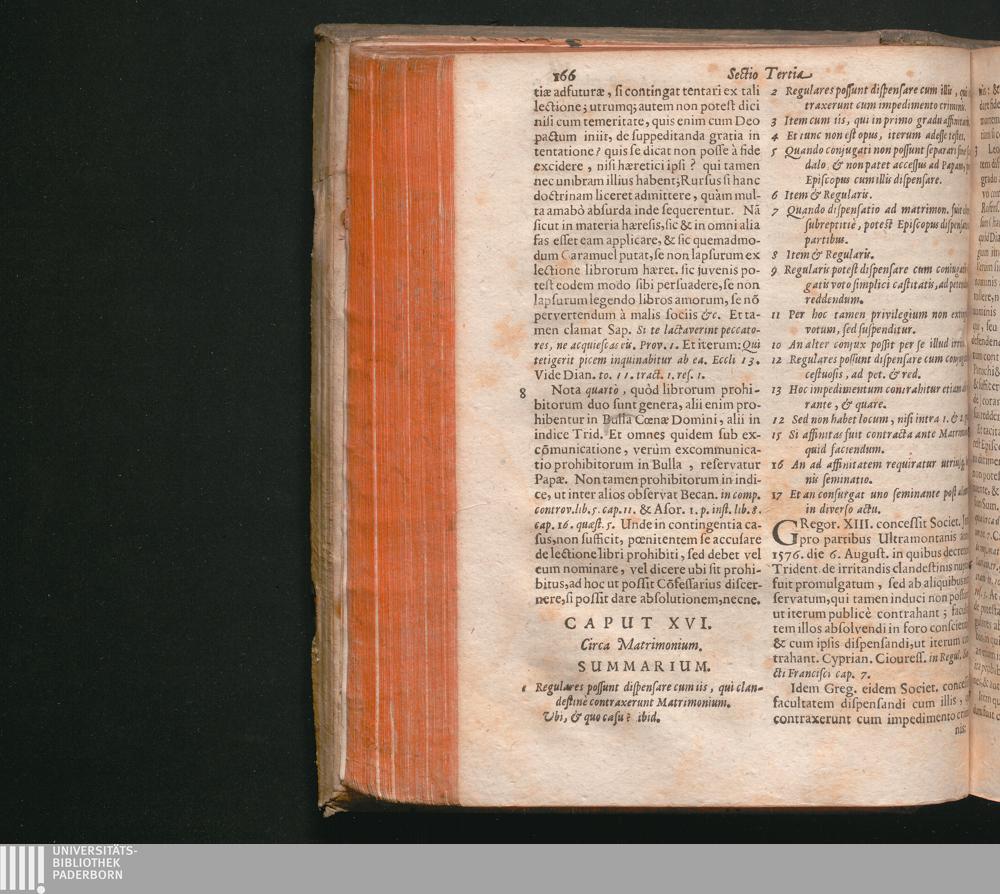 166
Sectio Tertia
tiæ adfuturæ, si contingat tentari ex tali
lectione; utrumq; autem non potest dici
nisi cum temeritate, quis enim cum Deo
pactum iniit, de suppeditanda gratia in
tentatione? quis se dicat non posse à fide
excidere, nisi hæretici ipsi? qui tamen
nec umbram illius habent; Rursus si hanc
doctrinam liceret admittere, quàm mul-
ta amabò absurda inde sequerentur. Nã
sicut in materia hæresis, sic & in omni alia
fas esset eam applicare, & sic quemadmo-
dum Caramuel putat, se non lapsurum ex
lectione librorum hæret. sic juvenis po-
test eodem modo sibi persuadere, se non
lapsurum legendo libros amorum, se nõ
pervertendum à malis sociis &c. Et ta-
men clamat Sap. Si te lactaverint peccato-
res, ne acquiescas eis. Prov. 1. Et iterum: Qui
tetigerit picem inquinabitur ab ea. Eccli 13.
Vide Dian. to. 11. tract. 1. res. 1.
8 Nota quartò, quòd librorum prohi-
bitorum duo sunt genera, alii enim pro-
hibentur in Bulla Cœnæ Domini, alii in
indice Trid. Et omnes quidem sub ex-
cõmunicatione, verùm excommunica-
tio prohibitorum in Bulla, reservatur
Papæ. Non tamen prohibitorum in indi-
ce, ut inter alios observat Becan. in comp.
controv. lib. 5. cap. 11. & Asor. 1. p. inst. lib. 8.
cap. 16. quæst. 5. Unde in contingentia ca-
sus, non sufficit, pœnitentem se accusare
de lectione libri prohibiti, sed debet vel
eum nominare, vel dicere ubi sit prohi-
bitus, ad hoc ut possit Cõfessarius discer-
nere, si possit dare absolutionem, necne.
CAPUT XVI.
Circa Matrimonium.
SUMMARIUM.
1 Regulares possunt dispensare cum iis, qui clan-
destinè contraxerunt Matrimonium.
Ubi, & quo casu? ibid.
2 Regulares possunt dispensare cum illis, qui
traxerunt cum impedimento criminis.
3 Item cum iis, qui in primo gradu affinitatis
4 Et tunc non est opus, iterum adesse testes.
5 Quando conjugati non possunt separari sine
dalo, & non patet accessus ad Papam,
Episcopus cum illis dispensare.
6 Item & Regularis.
7 Quando dispensatio ad matrimon. fuit
subreptitiè, potest Episcopus dispensare
partibus.
8 Item & Regularis.
9 Regularis potest dispensare cum
gatis voto simplici castitatis, ad
reddendum.
11 Per hoc tamen privilegium non
votum, sed suspenditur.
10 An alter conjux possit per se illud
12 Regulares possunt dispensare cum
cestuosis, ad pet. & red.
13 Hoc impedimentum contrahitur etiam
rante, & quare.
12 Sed non habet locum, nisi intra 1. & 2.
15 Si affinitas fuit contracta ante
quid faciendum.
16 An ad affinitatem requiratur
nis seminatio.
17 Et an consurgat uno seminante post
in diverso actu.
GRegor. XIII. concessit Societ.
pro partibus Ultramontanis
1576. die 6. August. in quibus
Trident. de irritandis clandestinis
fuit promulgatum, sed ab aliquibus
servatum, qui tamen induci non
ut iterum publicè contrahant;
tem illos absolvendi in foro
& cum ipsis dispensandi, ut iterum
trahant. Cyprian. Ciouress. in Regul.
cti Francisci cap. 7.
Idem Greg. eidem Societ.
facultatem dispensandi cum illis,
contraxerunt cum impedimento
nis:
UNIVERSITÄTS-
BIBLIOTHEK
PADERBORN